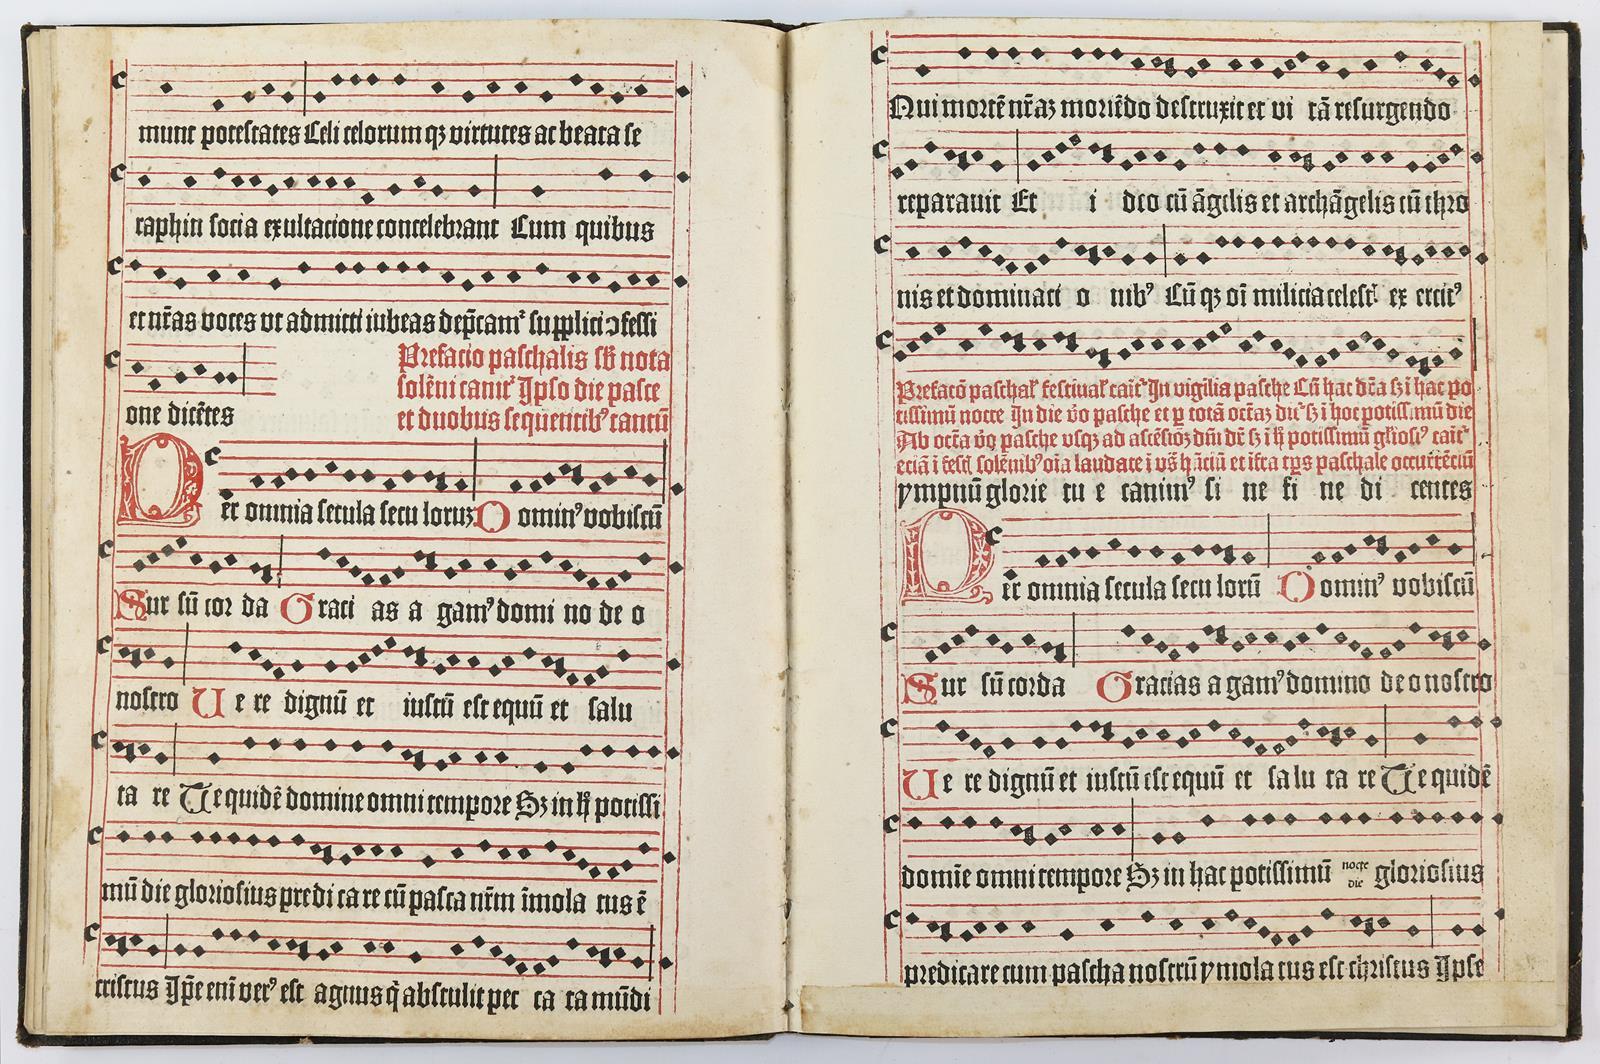 munt potestates Celi celorum qꝫ virtutes ac beata se
raphin socia exultacione concelebrant Cum quibus
et nr̄as voces vt admitti iubeas dep̄cam᷑ supplici ↄfessi
one dicētes
Prefacio paschalis sb̄ nota
solēni canit᷑ Ipso die pasce
et duobus sequentibꝰ tantū
Per omnia secula secu loruꝫ Dominꝰ vobiscū
Sur sū cor da Graci as a gamꝰ domi no de o
nostro Ue re dignū et iustū est equū et salu
ta re Te quidē domine omni tempore Sꝫ in h̄ potissi
mū die gloriosius predi ca re cū pasca nr̄m īmola tus ē
cristus Ip̄e eni verꝰ est agnus q̇ abstulit pec ca ta mūdi
Qui mortē nr̄aꝫ moriēdo destruxit et vi tā resurgendo
reparauit Et i deo cū āgelis et archāgelis cū thro
nis et dominaci o nibꝰ Cū qꝫ oī milicia celest ex ercitꝰ
Prefacō paschal festiual cait᷑ In vigilia pasche Cū hac dc̄a sꝫ ī hac po
tissimū nocte In die v̄o pasche et p totā octaꝫ dic᷑ sꝫ ī hoc potissimū die
Ab octa v̄o pasche vsqꝫ ad ascēsioꝫ dn̄i dr̄ sꝫ ī h̄ potissimū gl̄iosiꝰ cait᷑
eciā ī fest solēnibꝰ oīa laudate ī vs̄ et īfra tp̄s paschale occurrēciū
ympnū glorie tu e canimꝰ si ne fi ne di centes
Per omnia secula secu lorū Dominꝰ vobiscū
Sur sū corda Gracias a gamꝰ domino deo nostro
Ue re dignū et iustū est equū et salu ta re Te quidē
domīe omni tempore Sꝫ in hac potissimū nocte die gloriosius
predicare cum pascha nostrū ymola tus est christus Ipse